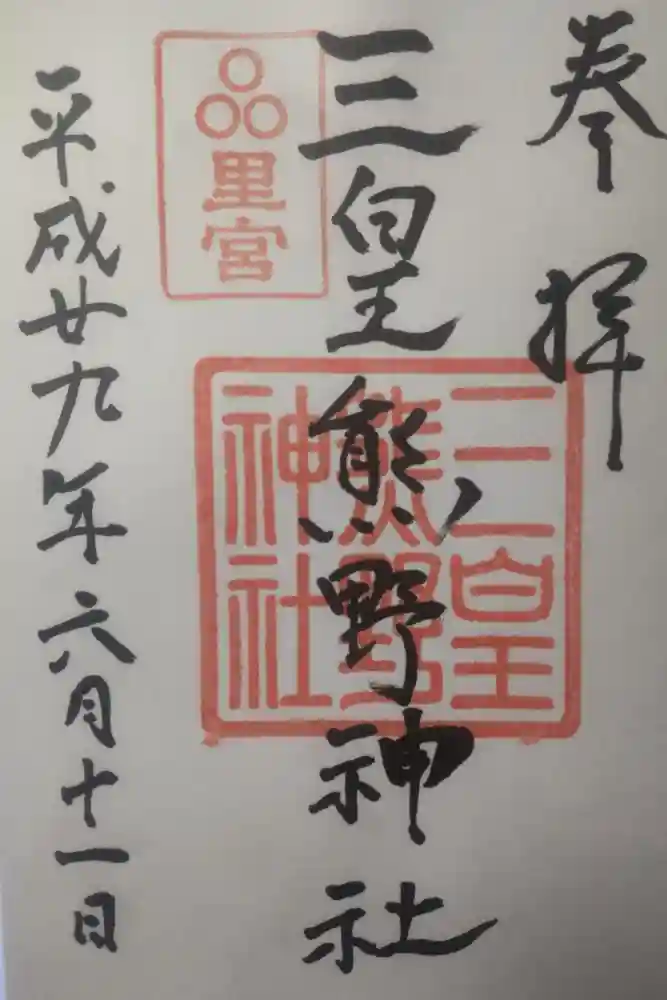 奉拝
三皇熊野神社
三皇
熊野
神社
里宮
平成廿九年六月十一日